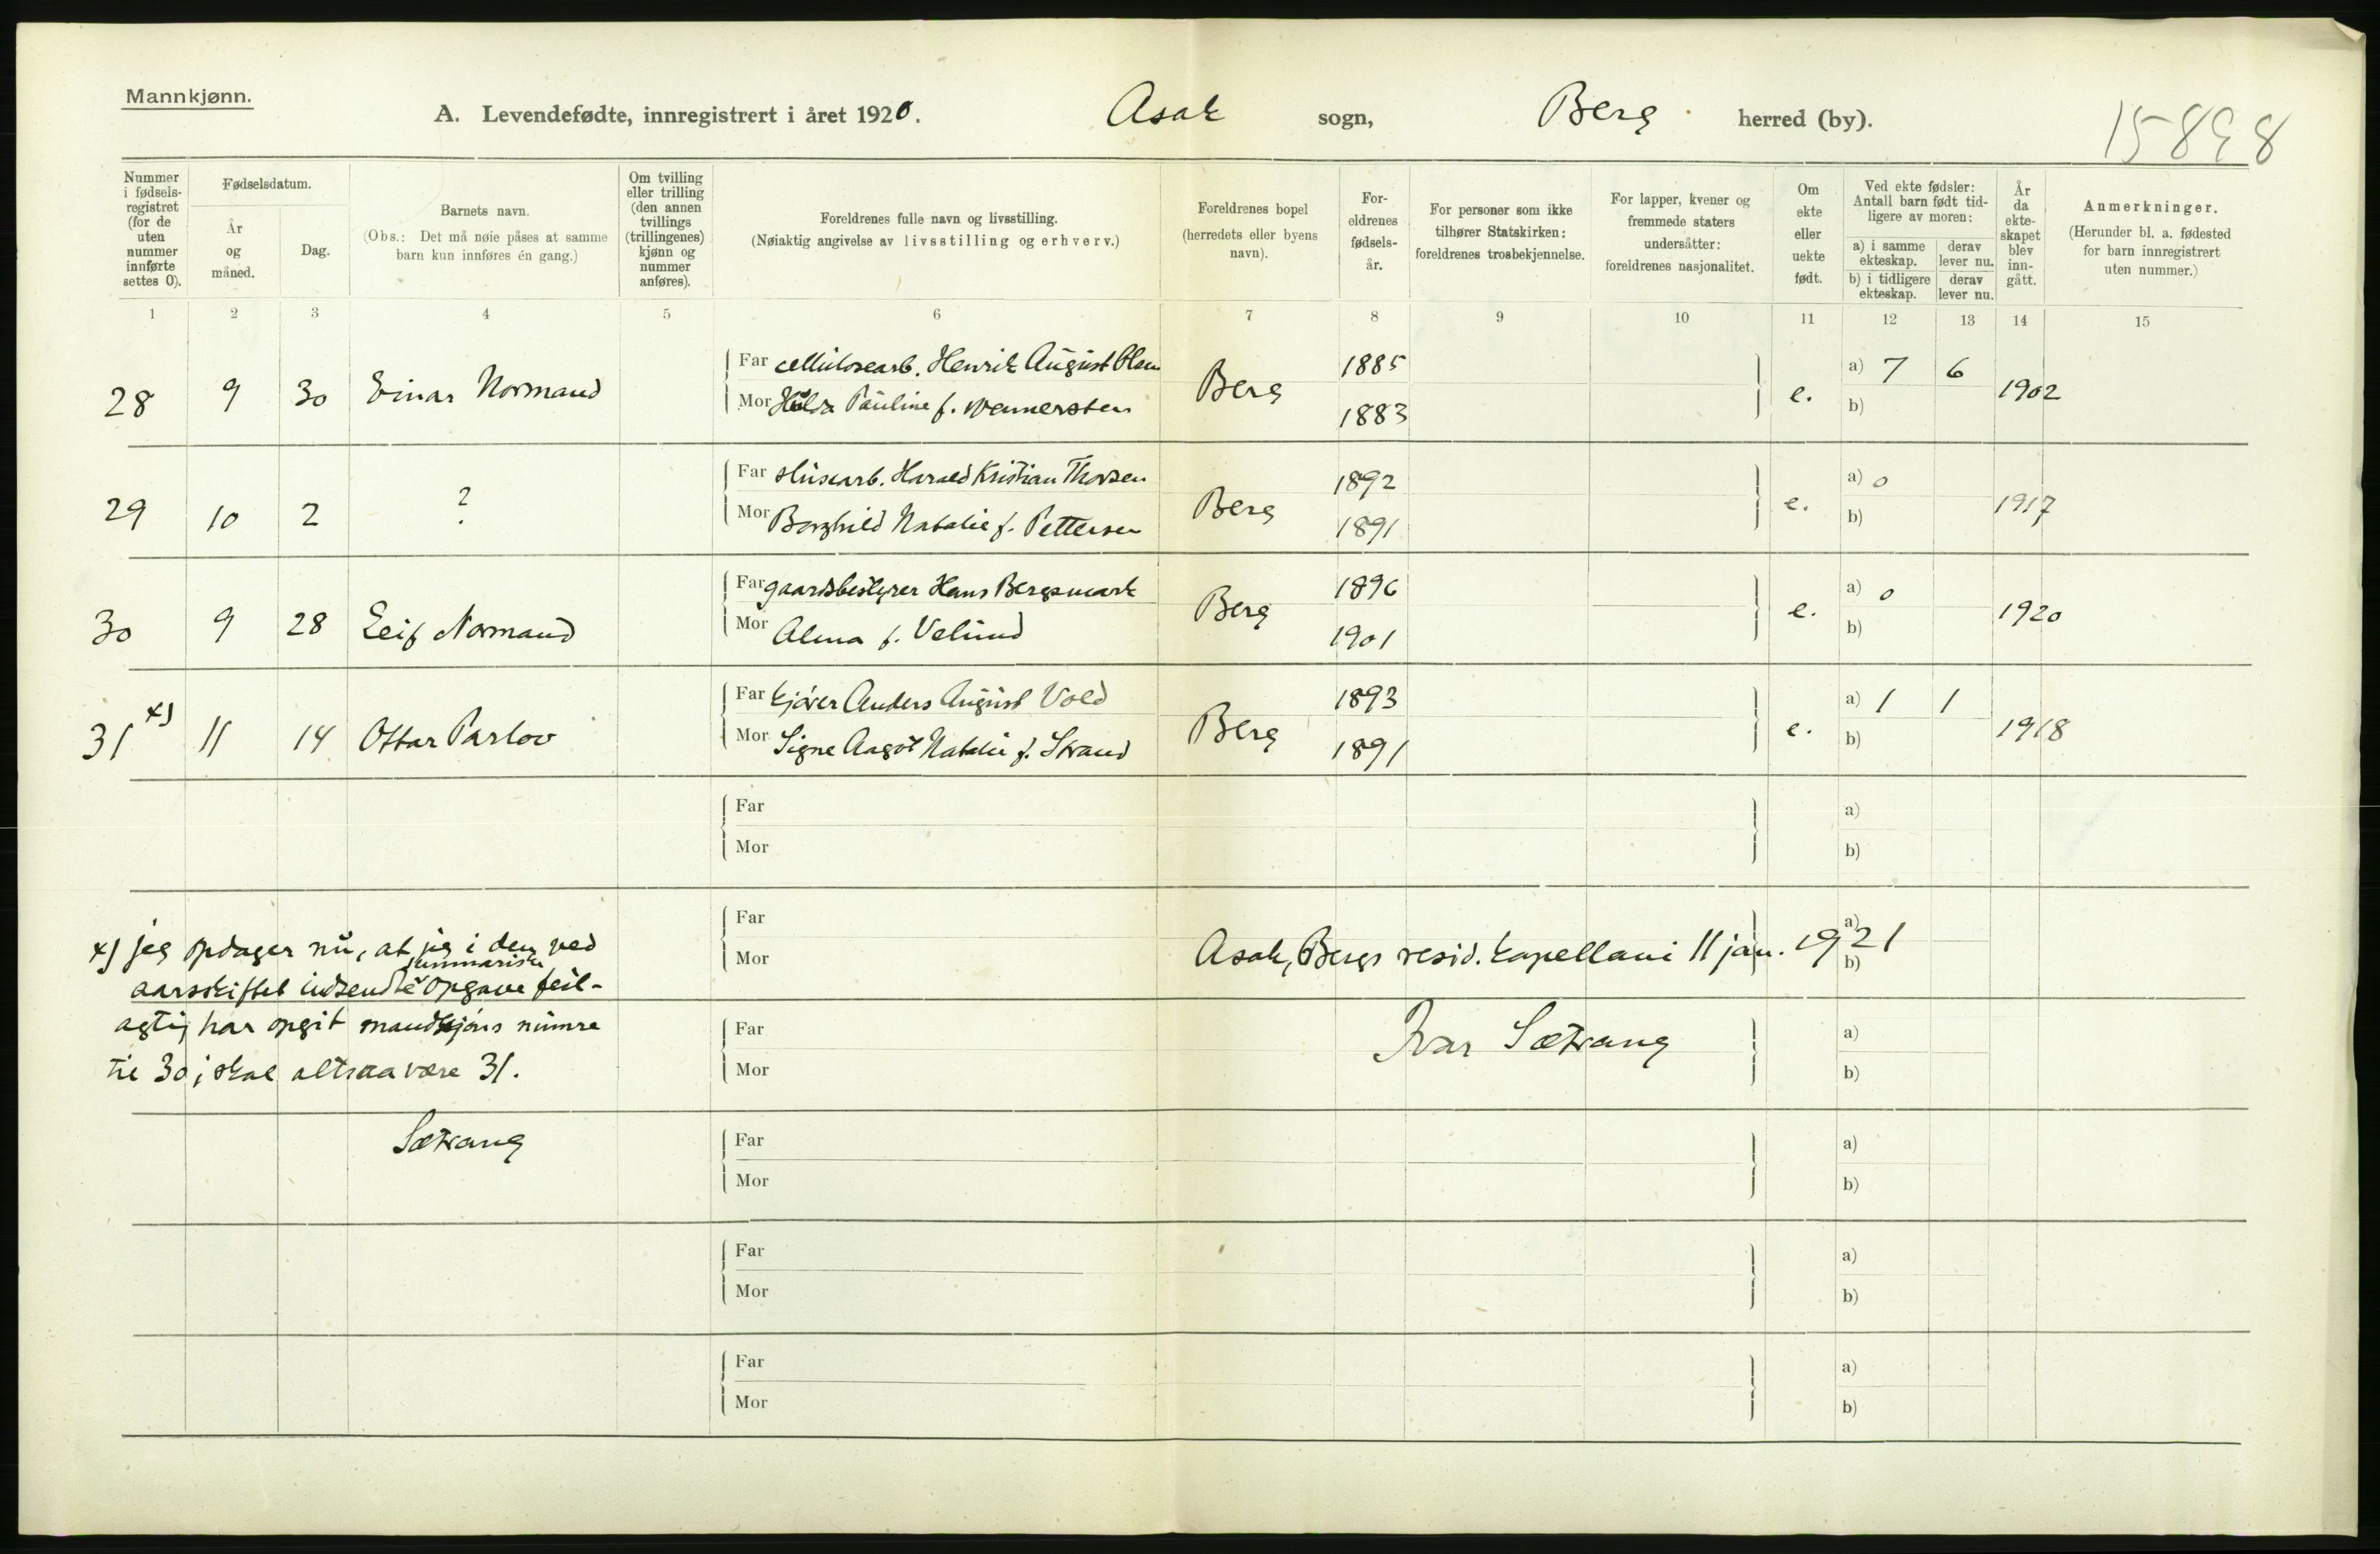 Mannkjønn.
A. Levendefødte, innregistrert i året 1920. Asak sogn, Berg herred (by).
15898
Nummer i fødsels-registret (for de uten nummer innførte settes 0).
Fødselsdatum.
År og måned.
Dag.
Barnets navn.
(Obs.: Det må nøie påses at samme barn kun innføres én gang.)
Om tvilling eller trilling (den annen tvillings (trillingenes) kjønn og nummer anføres).
Foreldrenes fulle navn og livsstilling.
(Nøiaktig angivelse av livsstilling og erhverv.)
Foreldrenes bopel (herredets eller byens navn).
For-eldrenes fødsels-år.
For personer som ikke tilhører Statskirken: foreldrenes trosbekjennelse.
For lapper, kvener og fremmede staters undersåtter: foreldrenes nasjonalitet.
Om ekte eller uekte født.
Ved ekte fødsler: Antall barn født tid-ligere av moren:
a) i samme ekteskap.
derav lever nu.
b) i tidligere ekteskap.
derav lever nu.
År da ekte-skapet blev inn-gått.
Anmerkninger.
(Herunder bl. a. fødested for barn innregistrert uten nummer.)
1 2 3 4 5 6 7 8 9 10 11 12 13 14 15
Far cellulosearb. Henrik August Olsen 1885 a) 7 6
28 9 30 Einar Normand Berg e. 1902
Mor Hilda Pauline f. Wennersten 1883 b)
Far Husarb. Harald Kristian Thorsen 1892 a) 0
29 10 2 ? Berg e. 1917
Mor Borghild Natalie f. Pettersen 1891 b)
Far gaardsbestyrer Hans Bergsmark 1896 a) 0
30 9 28 Leif Normand Berg e. 1920
Mor Alma f. Velund 1901 b)
Far kjører Anders August Vold 1893 a) 1 1
31 x) 11 14 Ottar Parlov Berg e. 1918
Mor Signe Aagot Natalie f. Strand 1891 b)
Far a)
Mor b)
Far a)
Mor b)
x) jeg opdager nu, at jeg i den ved
aarsskiftet indsendte summariske opgave feil-
agtig har opgit mandkjøns numre
til 30; skal altsaa være 31.
Sætrang
Asak, Bergs resid. kapellani 11 jan. 1921
Ivar Sætrang
Far a)
Mor b)
Far a)
Mor b)
Far a)
Mor b)
Far a)
Mor b)